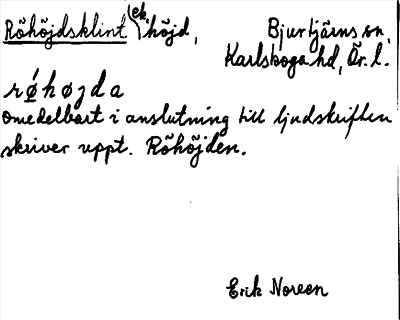 Röhöjdsklint (ek. höjd, Bjurtjärns sn,
Karlskoga hd, Ör. l.
rǿhøjda
omedelbart i anslutning till ljudskriften
skriver uppt. Röhöjden.
Erik Noreen